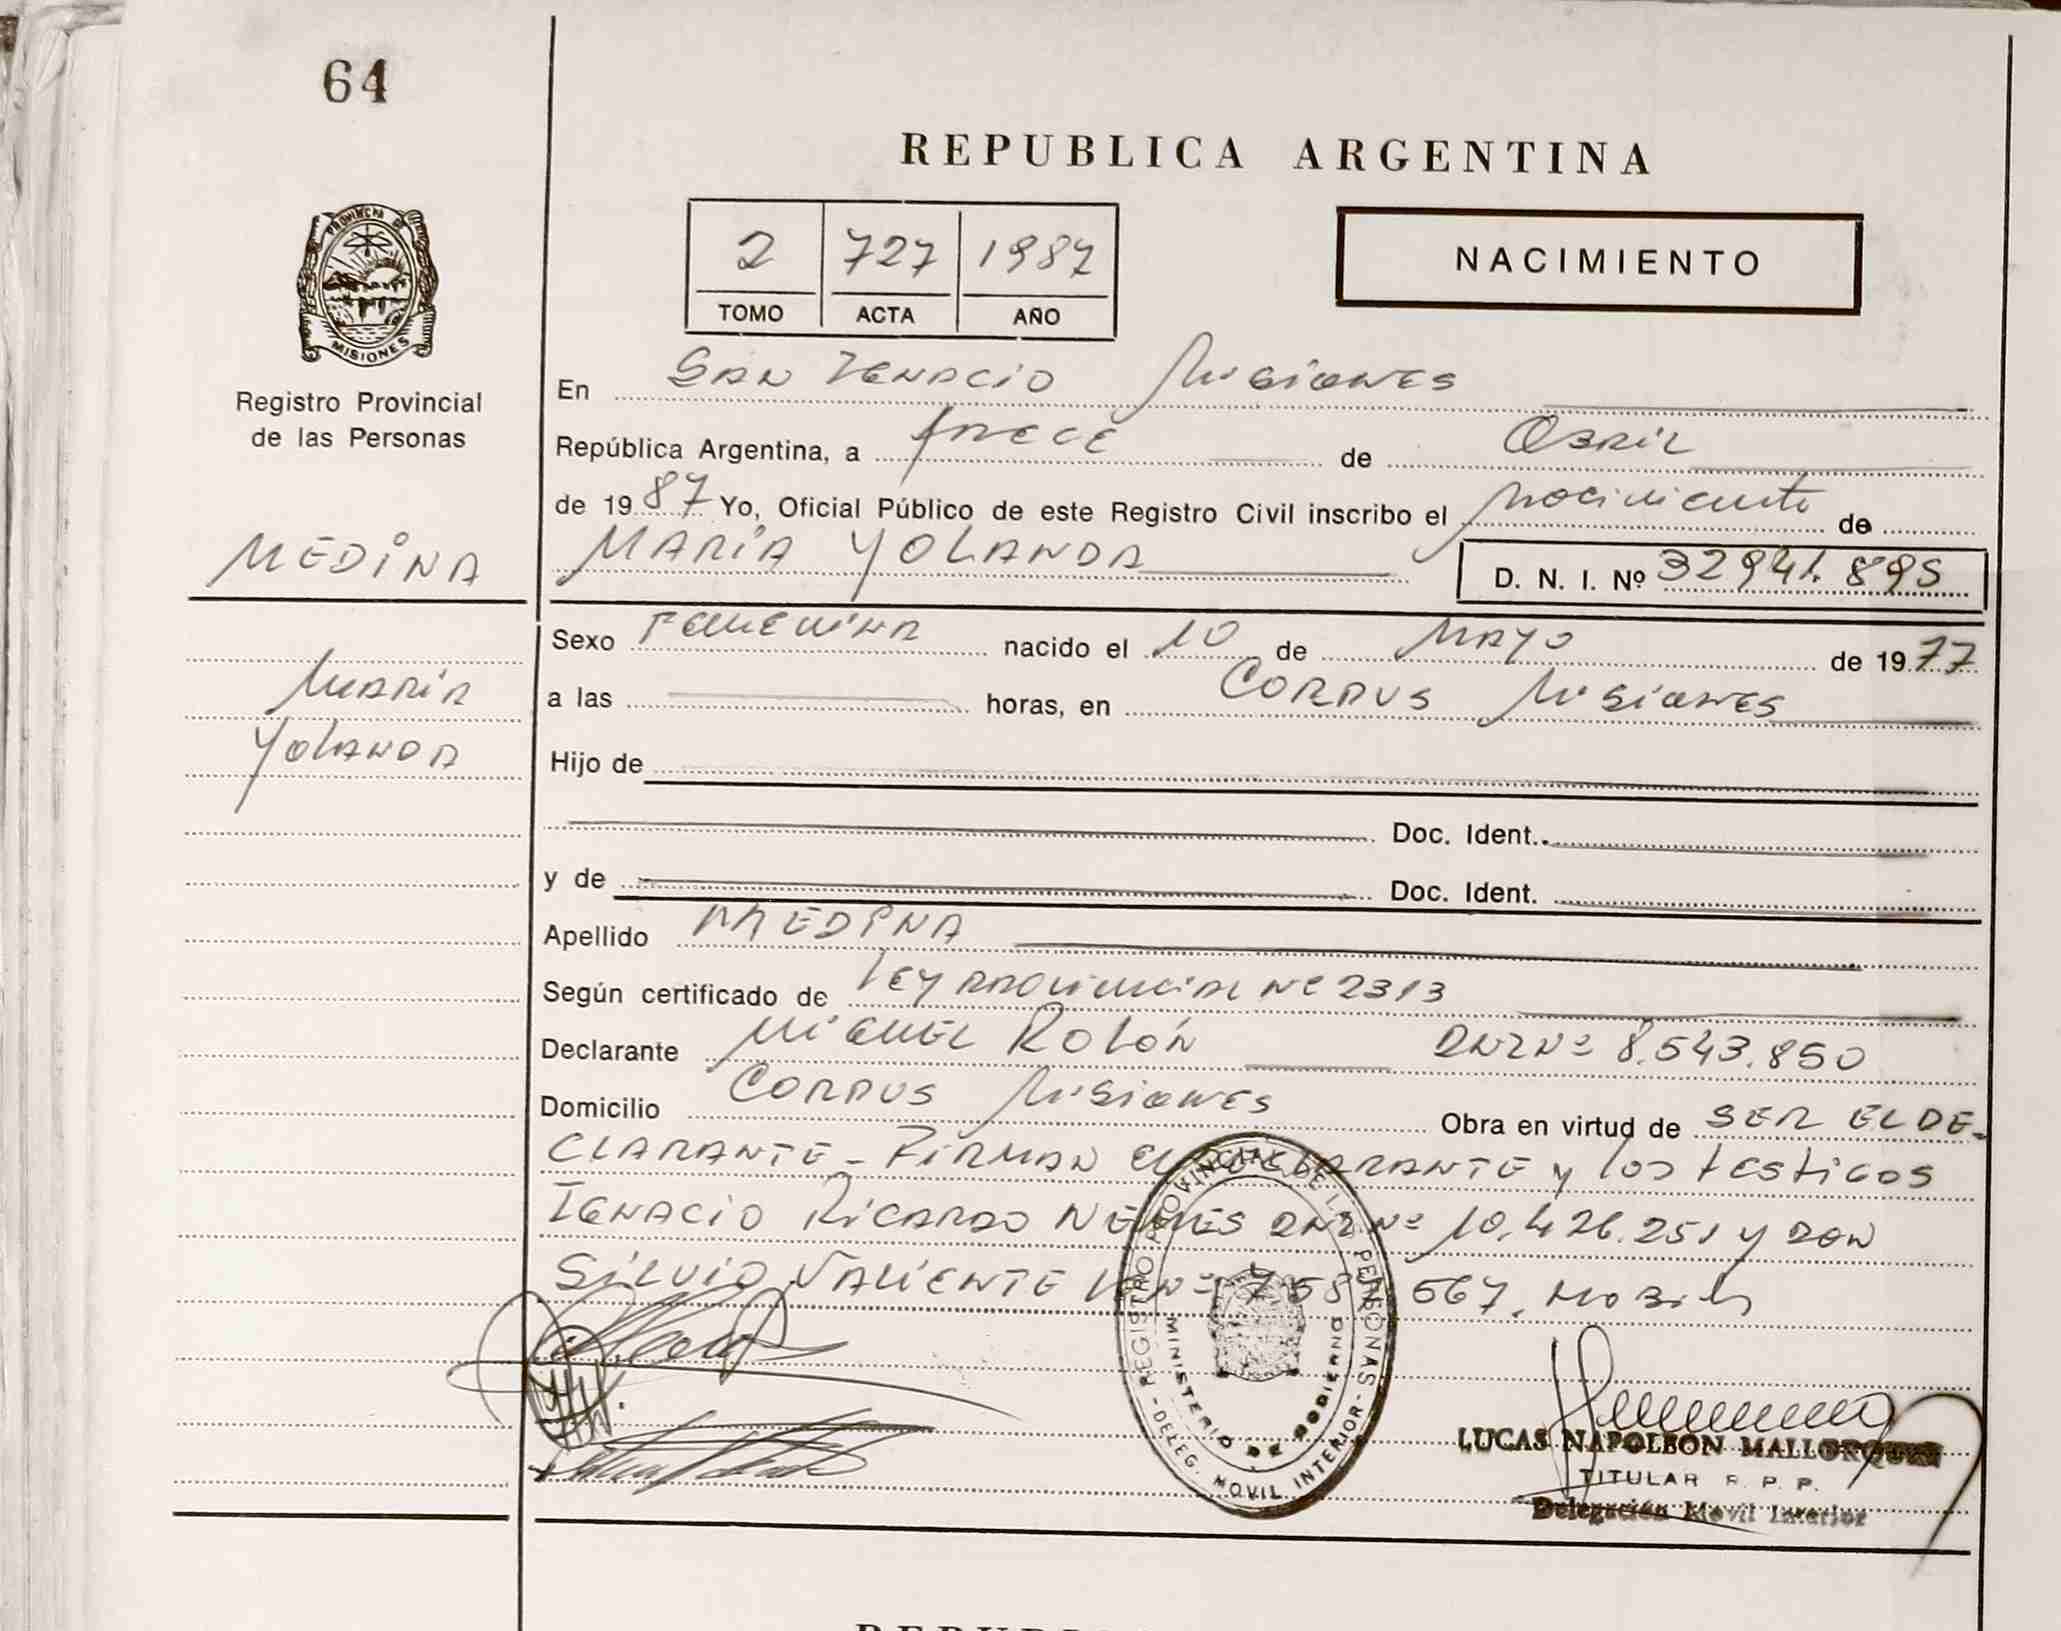 64
REPUBLICA ARGENTINA
2 727 1987
TOMO ACTA AÑO
NACIMIENTO
PROVINCIA DE
MISIONES
Registro Provincial
de las Personas
MEDINA
María
Yolanda
En San Ignacio Misiones
República Argentina, a trece de Abril
de 1987 Yo, Oficial Público de este Registro Civil inscribo el nacimiento de
MARIA YOLANDA D. N. I. Nº 32941.895
Sexo Femenina nacido el 10 de Mayo de 1977
a las horas, en Corpus Misiones
Hijo de
Doc. Ident.
y de Doc. Ident.
Apellido MEDINA
Según certificado de Ley Provincial Nº 2313
Declarante Miguel Rolón DNI Nº 8.543.850
Domicilio Corpus Misiones Obra en virtud de SER EL DE-
CLARANTE - Firman el declarante y los testigos
Ignacio Ricardo DNI Nº 10.426.251 y Don
Silvio Valiente 567.
REGISTRO PROVINCIAL DE LAS PERSONAS - DELEG. MOVIL INTERIOR -
MINISTERIO DE GOBIERNO
LUCAS NAPOLEON MALLORQUIN
TITULAR R. P. P.
Delegación Movil Interior